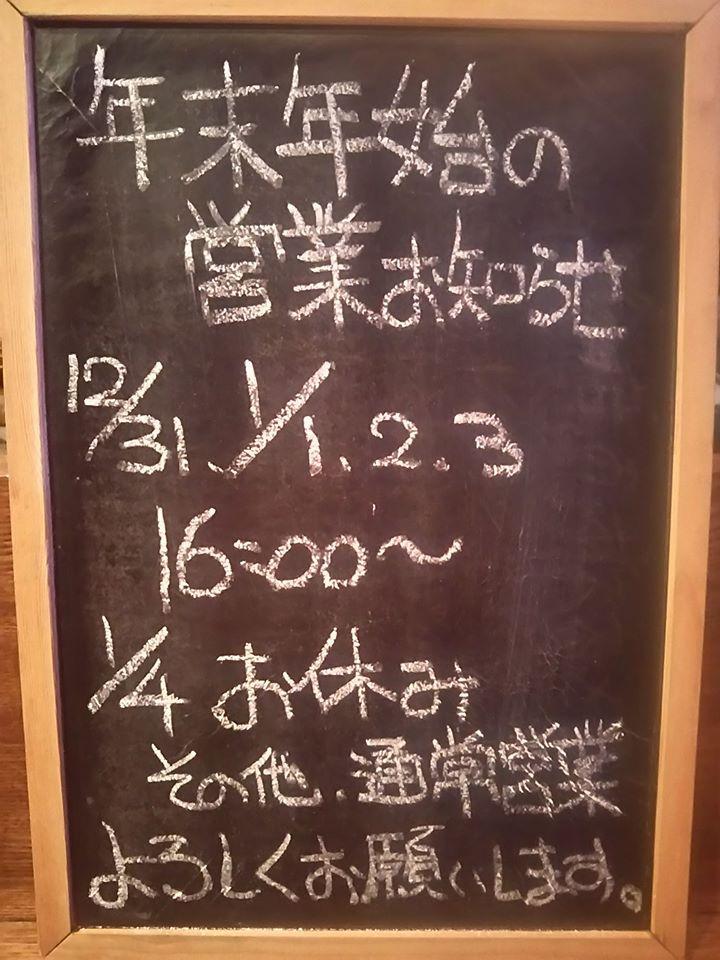 年末年始の
営業お知らせ
12/31、1/1、2.3
16:00〜
1/4 お休み
その他、通常営業
よろしくお願いします。